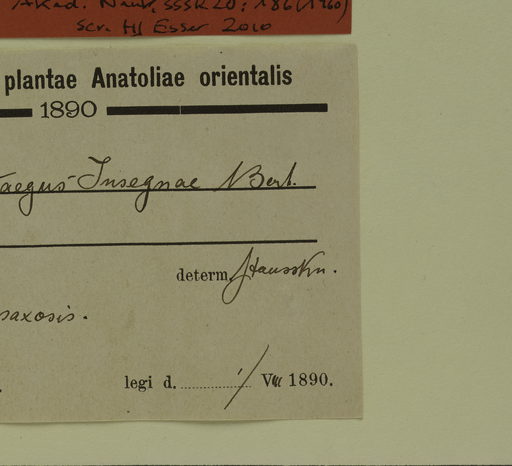 Akad. Nauk. SSSR 20: 186 (1960)
scr. HJ Esser 2010
plantae Anatoliae orientalis
1890
taegus Insegnae Bert.
determ. Hausskn.
saxosis.
legi d. 1/ VIII 1890.